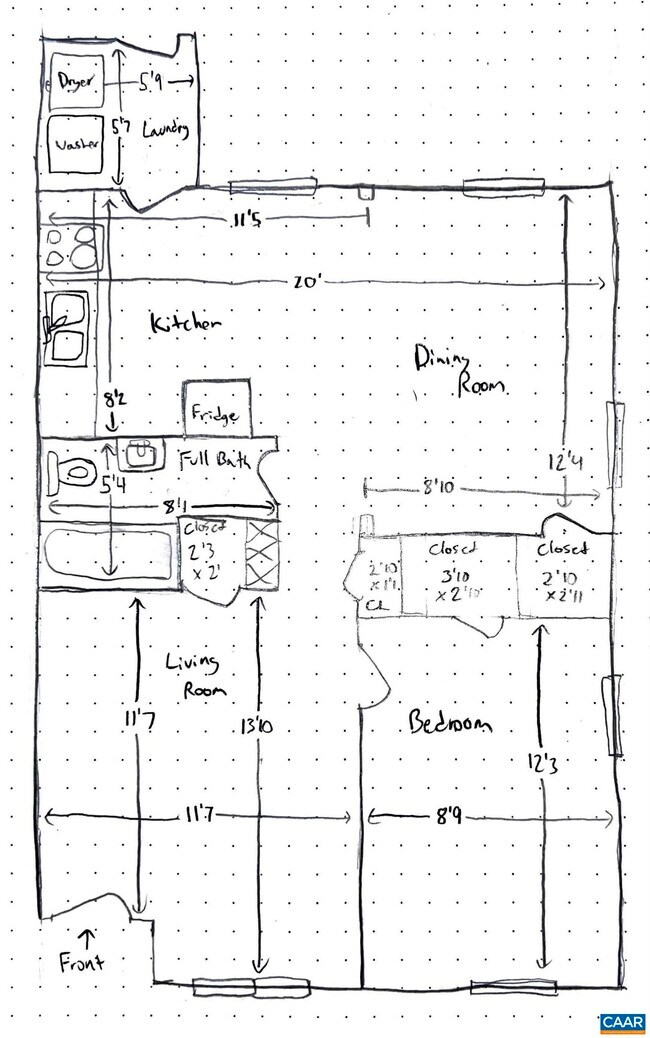 Dryer
5'9
5'7
Laundry
Washer
11'5
20'
Kitchen
Dining
Room
8'2
Fridge
Full Bath
12'4
5'4
8'10
8'1
Closet
2'3
x 2'
2'10
x 1'1
CL
Closet
3'10
x 2'10"
Closet
2'10
x 2'11
Living
Room
11'7
13'10
Bedroom
12'3
11'7
8'9
Front
CAAR